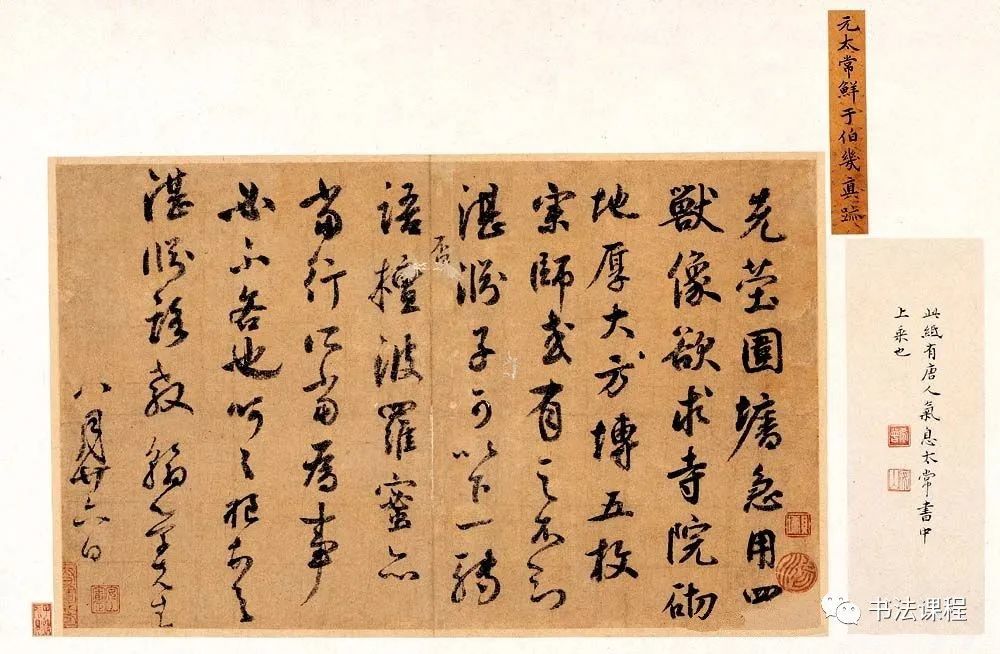 元太常鮮于伯幾真蹟
此紙有唐人氣息太常書中
上乘也
先茔圍墻急用四
獸像欲求寺院砌
地厚大方塼五枚
宗師或有之不知
湛淵子可以下一轉
語否檀波羅蜜亦
當行所當為事
必不吝也呵々樞頓首
湛淵 教 學先生
八月廿六日
书法课程